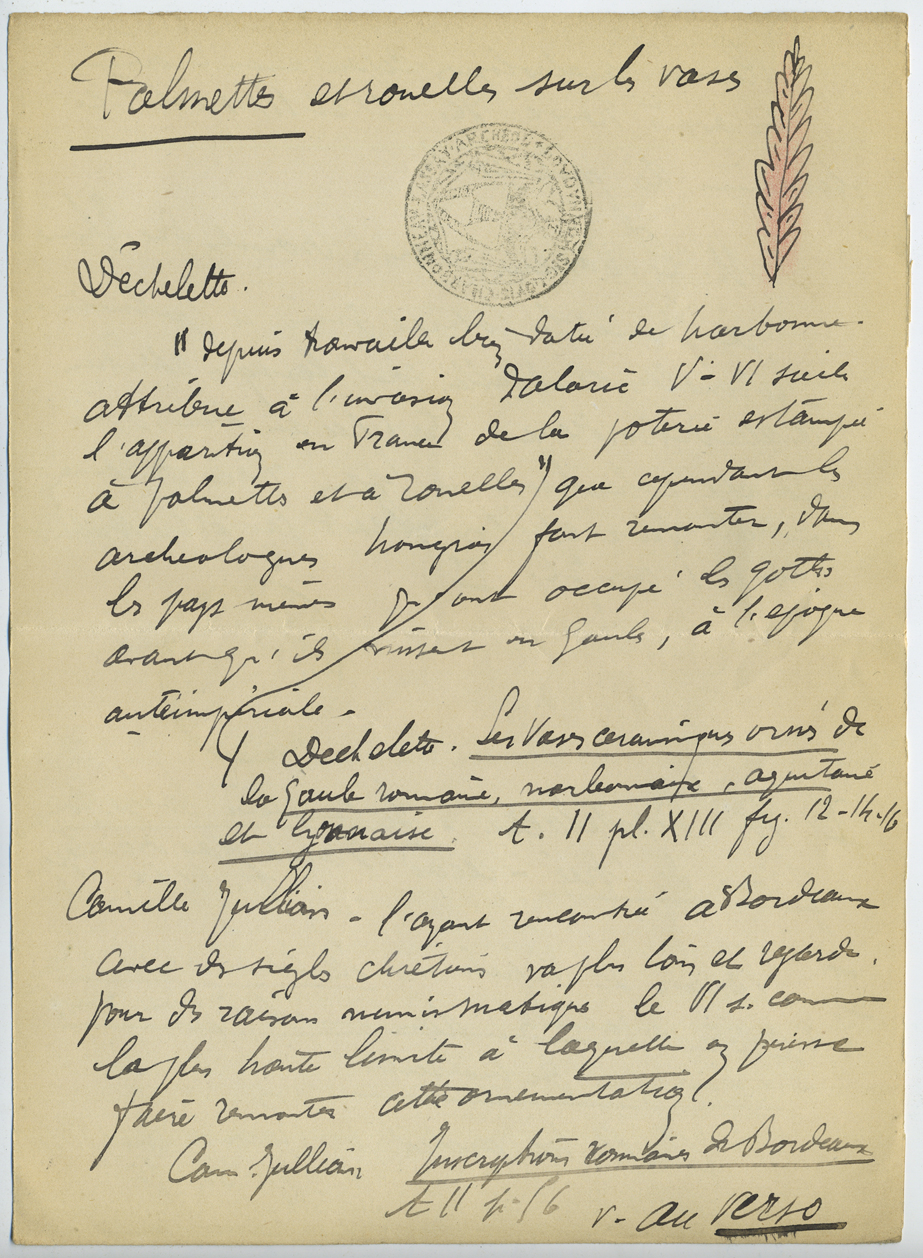 Palmettes et rouelles sur les vases
Déchelette.
" depuis travaille bien daté de Narbonne.
attribue à l'invasion d'alaric V - VI siècle
l'apparition en France de la poterie estampée
à palmettes et à rouelles " que cependant les
archeologues hongrois font remonter, dans
les pays mêmes qu'ont occupé les goths
avant qu'ils vinssent en Gaule, à l'epoque
antéimpériale -
Dechelette. Les Vases ceramiques ornés de
la Gaule romaine, narbonnaise, aquitaine
et lyonnaise. t. II pl. XIII fig. 12-14-16
Camille Jullian - l'ayant rencontré à Bordeaux
avec des sigles chrétiens va plus loin et regarde
pour des raisons numismatiques le VI s. comme
la plus haute limite à laquelle on puisse
faire remonter cette ornementation.
Cam. Jullian Inscriptions romaines de Bordeaux
t II p. 56 v. au verso